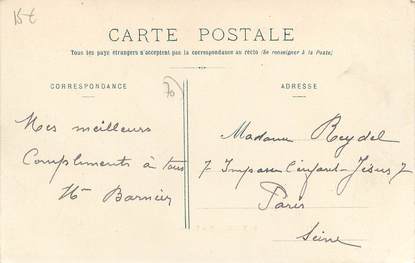 15€
CARTE POSTALE
Tous les pays étrangers n'acceptent pas la correspondance au recto (Se renseigner à la Poste)
CORRESPONDANCE
70
Mes meilleurs
Compliments à tous
Hte Barnier
ADRESSE
Madame Reydel
7 Impasse Enfant-Jésus 7
Paris
Seine